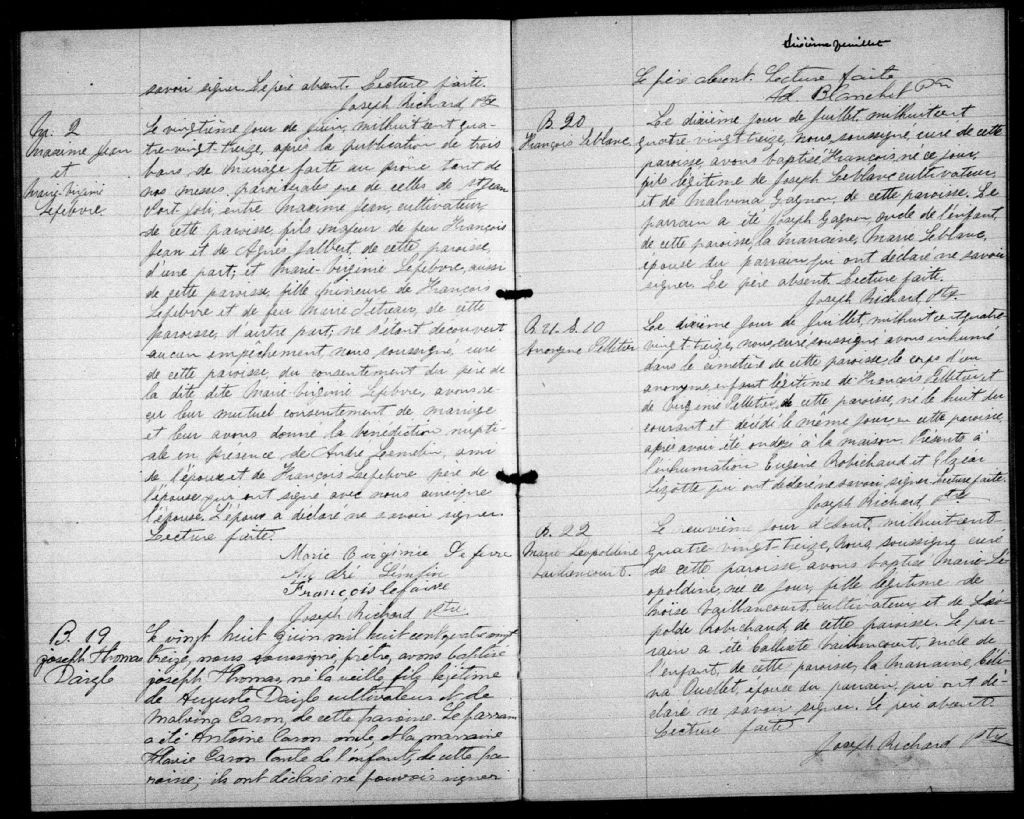 savoir signer. Le père absent. Lecture faite.
Joseph Richard Ptre
M. 2
Maxime Jean
et
Marie Virginie
Lefebvre.
Le vingtième jour de juin, milhuit cent qua-
tre-vingt-treize, après la publication de trois
bans de mariage faite au prône tant de
nos messes paroissiales que de celles de St Jean
Port joli, entre Maxime Jean, cultivateur,
de cette paroisse, fils majeur de feu François
Jean et de Agnès Jalbert, de cette paroisse,
d'une part; et Marie-Virginie Lefebvre, aussi
de cette paroisse, fille mineure de François
Lefebvre et de feu Marie Tetreau, de cette
paroisse, d'autre part, ne s'étant découvert
aucun empêchement, nous soussigné, curé
de cette paroisse, du consentement du père de
la dite dite Marie Virginie Lefebvre, avons re-
çu leur mutuel consentement de mariage
et leur avons donné la bénédiction nupti-
ale en présence de André ami
de l'époux et de François Lefebvre père de
l'épouse, qui ont signé avec nous
l'épouse. L'époux a déclaré ne savoir signer.
Lecture faite.
Marie Virginie Lefevre
François lefaivre
Joseph Richard Ptre
B. 19
joseph Thomas
Daigle
Le vingt huit Juin mil huit cent quatre vingt
treize, nous soussigné, prêtre, avons baptisé
joseph Thomas, né la veille, fils légitime
de Auguste Daigle cultivateur et de
Malvina Caron, de cette paroisse. Le parrain
a été Antoine Caron oncle, et la marraine
Flavie Caron tante de l'enfant, de cette pa-
roisse; ils ont déclaré ne pouvoir signer
sixième feuillet
Le père absent. Lecture faite
Ad. Blanchet Ptre
B 20
François Leblanc.
Le dixième jour de Juillet, milhuit cent
quatre-vingt treize, nous, soussigné, curé de cette
paroisse, avons baptisé François, né ce jour,
fils légitime de Joseph Leblanc cultivateur,
et de Malvina Gagnon, de cette paroisse. Le
parrain a été Joseph Gagnon, oncle de l'enfant,
de cette paroisse, la marraine, Marie Leblanc,
épouse du parrain, qui ont déclaré ne savoir
signer. Le père absent. Lecture faite.
Joseph Richard Ptre.
B 21. S. 10
Anonyme Pelletier
Le dixième jour de Juillet, milhuit cent quatre
vingt treize, nous, curé soussigné avons inhumé
dans le cimetière de cette paroisse le corps d'un
anonyme, enfant légitime de François Pelletier, et
de Virginie Pelletier, de cette paroisse, né le huit du
courant et décédé le même jour en cette paroisse,
après avoir été ondoyé à la maison. Présents à
l'inhumation Eugène Robichaud et Elzéar
Lizotte qui ont déclaré ne savoir signer. Lecture faite.
Joseph Richard Ptre
B. 22
Marie Léopoldine
Vaillancourt.
Le neuvième jour d'Août, milhuit cent-
quatre vingt-treize, nous, soussigné curé
de cette paroisse avons baptisé Marie-Lé-
opoldine, née ce jour, fille légitime de
Moïse Vaillancourt, cultivateur, et de Léo-
polde Robichaud, de cette paroisse. Le par-
rain a été Calixte Vaillancourt, oncle de
l'enfant, de cette paroisse, la marraine, Céli-
na Ouellet, épouse du parrain, qui ont dé-
claré ne savoir signer. Le père absent.
Lecture faite
Joseph Richard Ptre